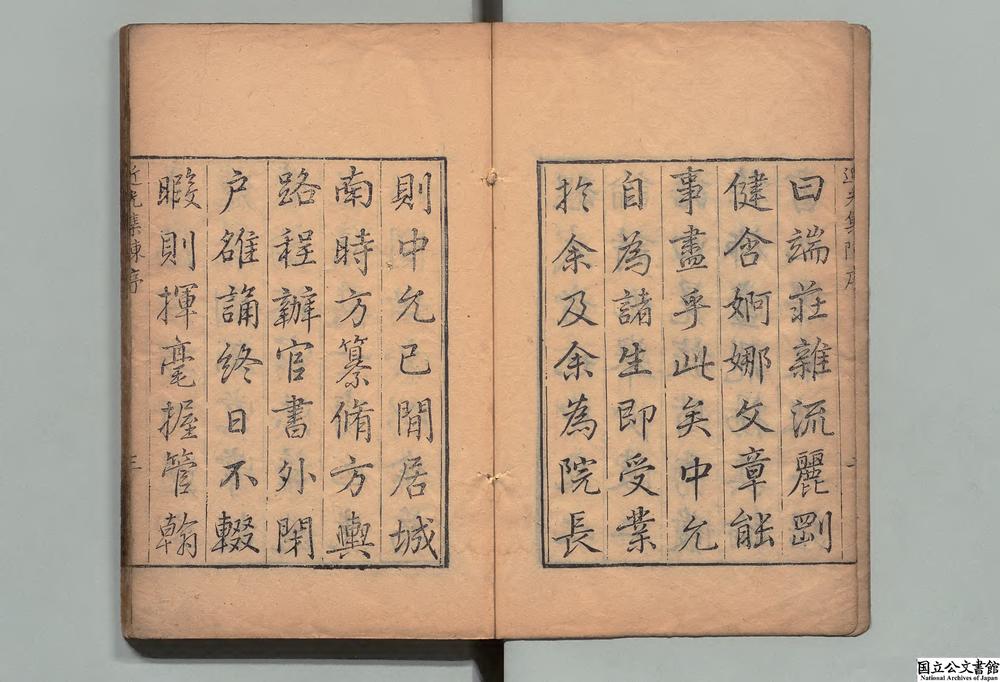 曰端莊雜流麗剛
健含婀娜文章能
事盡乎此矣中允
自為諸生即受業
於余及余為院長
則中允已閒居城
南時方纂脩方輿
路程辦官書外閉
户雒誦終日不輟
暇則揮毫握管翰
近光集陳序
三
国立公文書館
National Archives of Japan